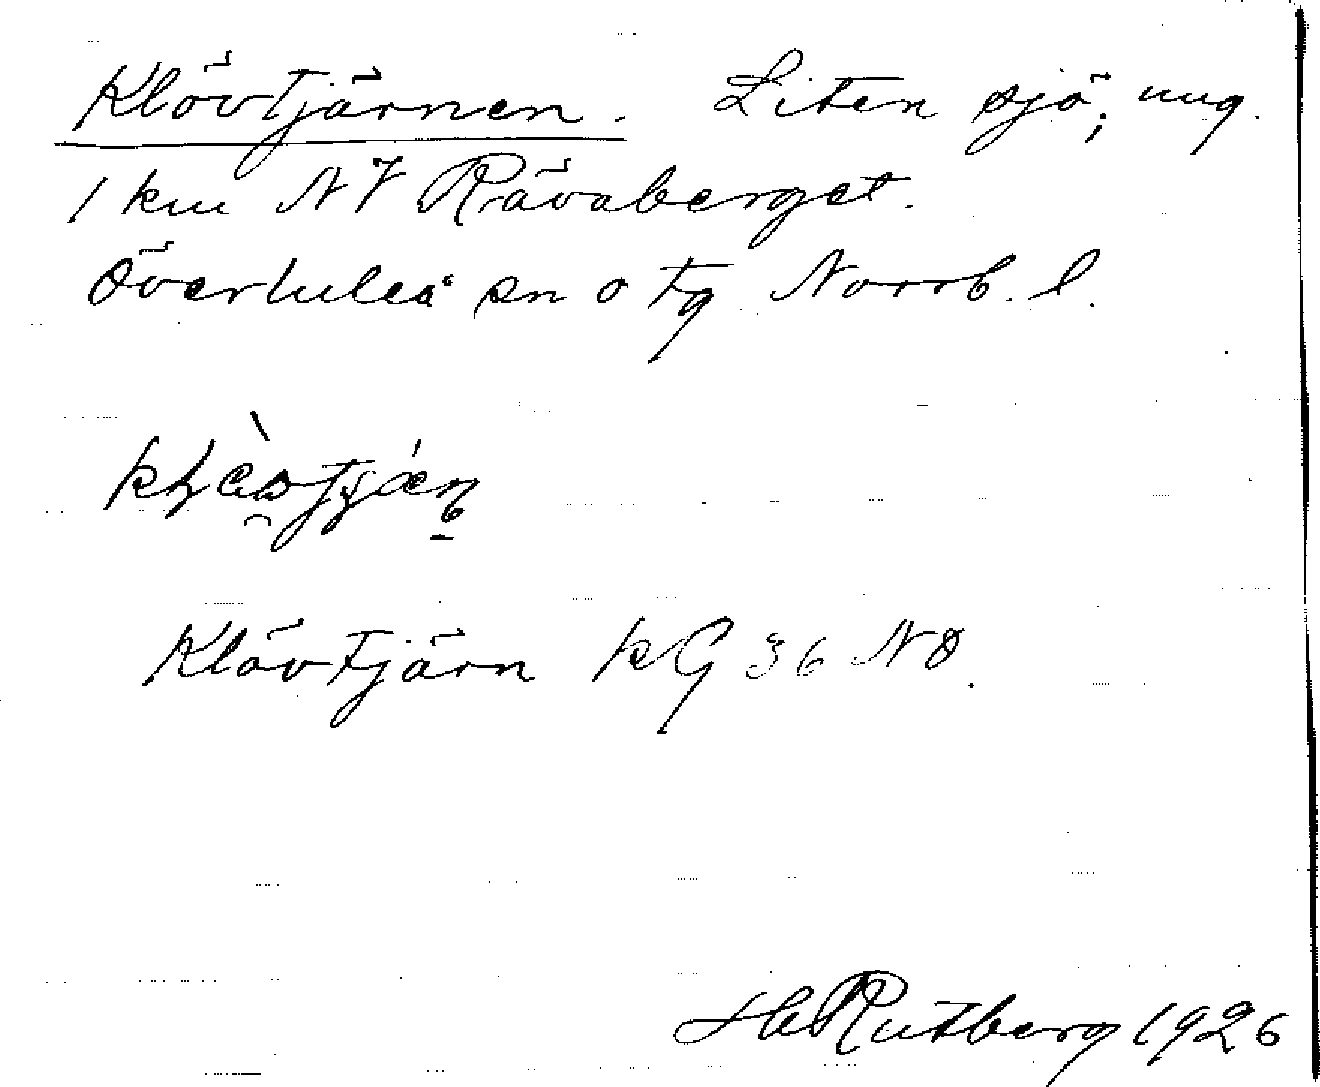 Klövtjärnen. Liten sjö, ung.
1 km NV Rävaberget.
Överluleå sn o tg Norrb. l.
Klövtjärn kG 36 NO.
H Rutberg 1926